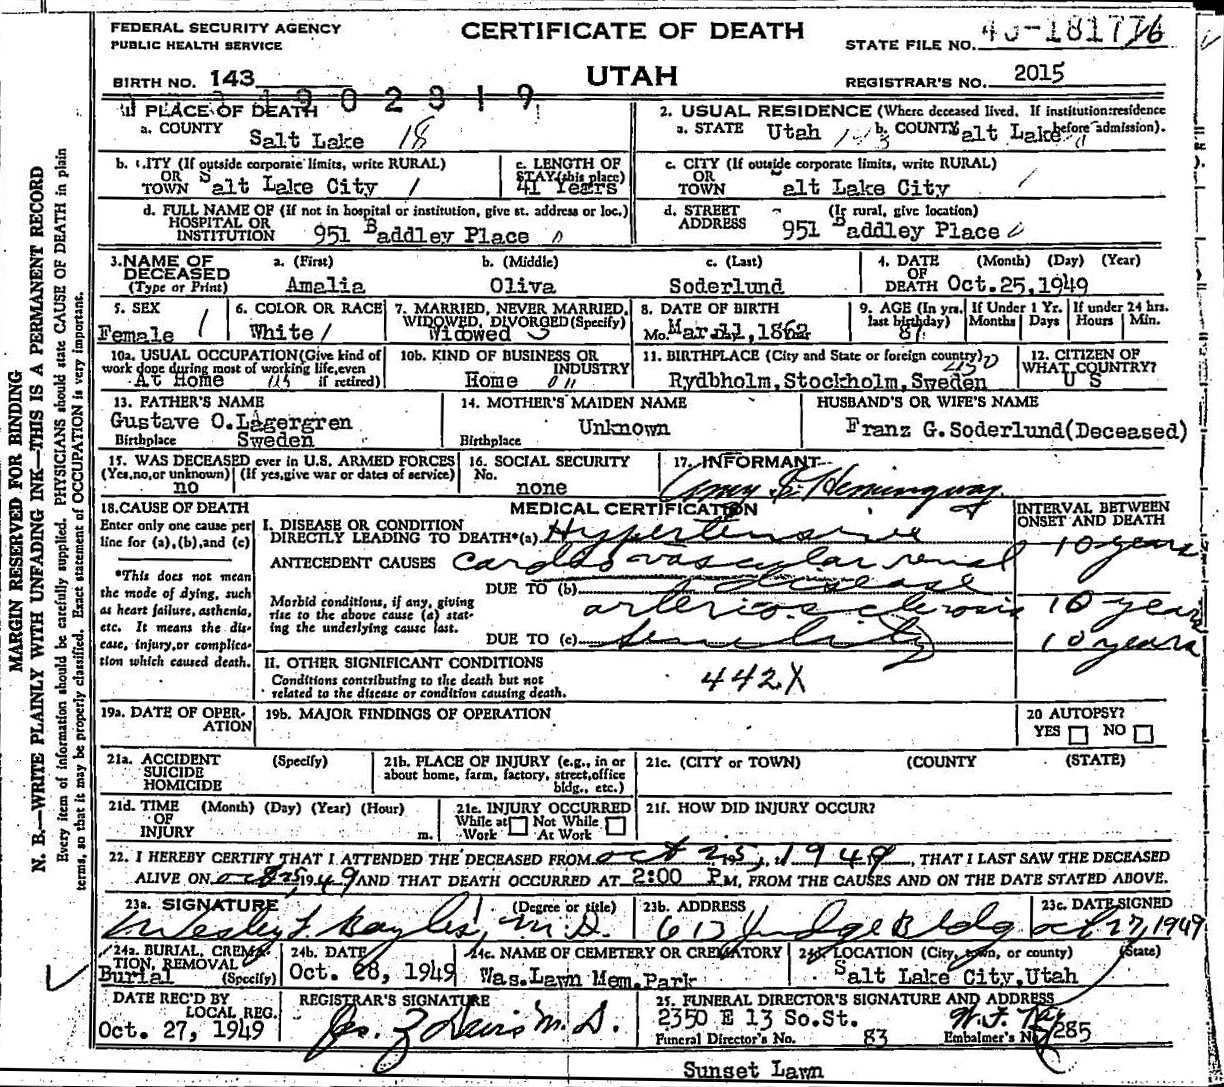 FEDERAL SECURITY AGENCY
PUBLIC HEALTH SERVICE
CERTIFICATE OF DEATH
STATE FILE NO.
BIRTH NO. 143
UTAH
REGISTRAR'S NO. 2015
1902819
1. PLACE OF DEATH
a. COUNTY
Salt Lake 18
2. USUAL RESIDENCE (Where deceased lived. If institution:residence before admission).
a. STATE Utah b. COUNTY Salt Lake
b. CITY (If outside corporate limits, write RURAL)
OR
TOWN Salt Lake City
c. LENGTH OF
STAY (this place)
41 Years
c. CITY (If outside corporate limits, write RURAL)
OR
TOWN Salt Lake City
d. FULL NAME OF (If not in hospital or institution, give st. address or loc.)
HOSPITAL OR
INSTITUTION 951 Baddley Place
d. STREET (If rural, give location)
ADDRESS 951 Baddley Place
3. NAME OF
DECEASED
(Type or Print)
a. (First)
Amalia
b. (Middle)
Oliva
c. (Last)
Soderlund
4. DATE (Month) (Day) (Year)
OF
DEATH Oct.25,1949
5. SEX
Female
6. COLOR OR RACE
White
7. MARRIED, NEVER MARRIED,
WIDOWED, DIVORCED (Specify)
Widowed
8. DATE OF BIRTH
Mo. Mar.11,1862
9. AGE (In yrs.
last birthday)
87
If Under 1 Yr.
Months Days
If under 24 hrs.
Hours Min.
10a. USUAL OCCUPATION (Give kind of
work done during most of working life, even
if retired)
At Home
10b. KIND OF BUSINESS OR
INDUSTRY
Home
11. BIRTHPLACE (City and State or foreign country)
Rydbholm,Stockholm,Sweden
12. CITIZEN OF
WHAT COUNTRY?
U S
13. FATHER'S NAME
Gustave O.Lagergren
Birthplace Sweden
14. MOTHER'S MAIDEN NAME
Unknown
Birthplace
HUSBAND'S OR WIFE'S NAME
Franz G.Soderlund(Deceased)
15. WAS DECEASED ever in U.S. ARMED FORCES
(Yes,no,or unknown) (If yes,give war or dates of service)
no
16. SOCIAL SECURITY
No.
none
17. INFORMANT
Amy S. Hemingway
18. CAUSE OF DEATH
Enter only one cause per
line for (a),(b),and (c)
*This does not mean
the mode of dying, such
as heart failure, asthenia,
etc. It means the dis-
ease, injury,or complica-
tion which caused death.
MEDICAL CERTIFICATION
INTERVAL BETWEEN
ONSET AND DEATH
I. DISEASE OR CONDITION
DIRECTLY LEADING TO DEATH*(a) Hypertensive
10 years
ANTECEDENT CAUSES cardio vascular renal
DUE TO (b) disease
Morbid conditions, if any, giving
rise to the above cause (a) stat-
ing the underlying cause last.
arteriosclerosis 10 years
DUE TO (c) senility 10 years
II. OTHER SIGNIFICANT CONDITIONS
Conditions contributing to the death but not
related to the disease or condition causing death.
442X
19a. DATE OF OPER-
ATION
19b. MAJOR FINDINGS OF OPERATION
20 AUTOPSY?
YES NO
21a. ACCIDENT (Specify)
SUICIDE
HOMICIDE
21b. PLACE OF INJURY (e.g., in or
about home, farm, factory, street,office
bldg., etc.)
21c. (CITY or TOWN) (COUNTY) (STATE)
21d. TIME (Month) (Day) (Year) (Hour)
OF
INJURY m.
21e. INJURY OCCURRED
While at Work Not While At Work
21f. HOW DID INJURY OCCUR?
22. I HEREBY CERTIFY THAT I ATTENDED THE DECEASED FROM Oct 25, 1949, THAT I LAST SAW THE DECEASED
ALIVE ON Oct 25 1949 AND THAT DEATH OCCURRED AT 2:00 P.M, FROM THE CAUSES AND ON THE DATE STATED ABOVE.
23a. SIGNATURE (Degree or title)
Wesley F. Bayles, M.D.
23b. ADDRESS
612 Judge Bldg
23c. DATE SIGNED
Oct 27, 1949
24a. BURIAL, CREMA-
TION, REMOVAL
(Specify)
Burial
24b. DATE
Oct. 28, 1949
24c. NAME OF CEMETERY OR CREMATORY
Was.Lawn Mem.Park
24d. LOCATION (City, town, or county) (State)
Salt Lake City,Utah
DATE REC'D BY
LOCAL REG.
Oct. 27, 1949
REGISTRAR'S SIGNATURE
M.D.
25. FUNERAL DIRECTOR'S SIGNATURE AND ADDRESS
2350 E 13 So.St.
Funeral Director's No. 83 Embalmer's No. 285
Sunset Lawn
MARGIN RESERVED FOR BINDING
N. B.—WRITE PLAINLY WITH UNFADING INK—THIS IS A PERMANENT RECORD
Every item of information should be carefully supplied. PHYSICIANS should state CAUSE OF DEATH in plain
terms, so that it may be properly classified. Exact statement of OCCUPATION is very important.